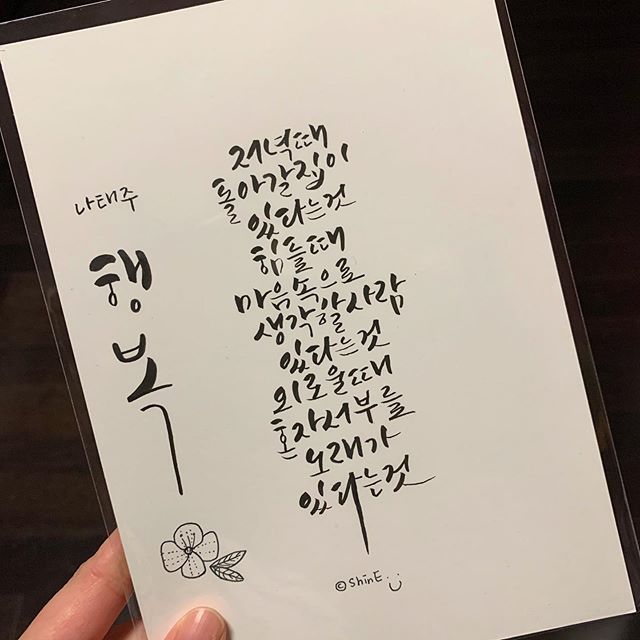 나태주
행
복
저녁때
돌아갈집이
있다는것
힘들때
마음속으로
생각할사람
있다는것
외로울때
혼자서부를
노래가
있다는것
©shinE